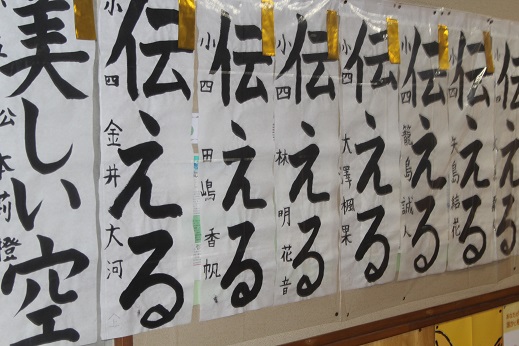 美しい空
松本莉橙
伝える
小四 金井大河
伝える
小四 田嶋香帆
伝える
小四 林明花音
伝える
小四 大澤楓果
伝える
小四 籠島誠人
伝える
小四 矢島結花
伝える